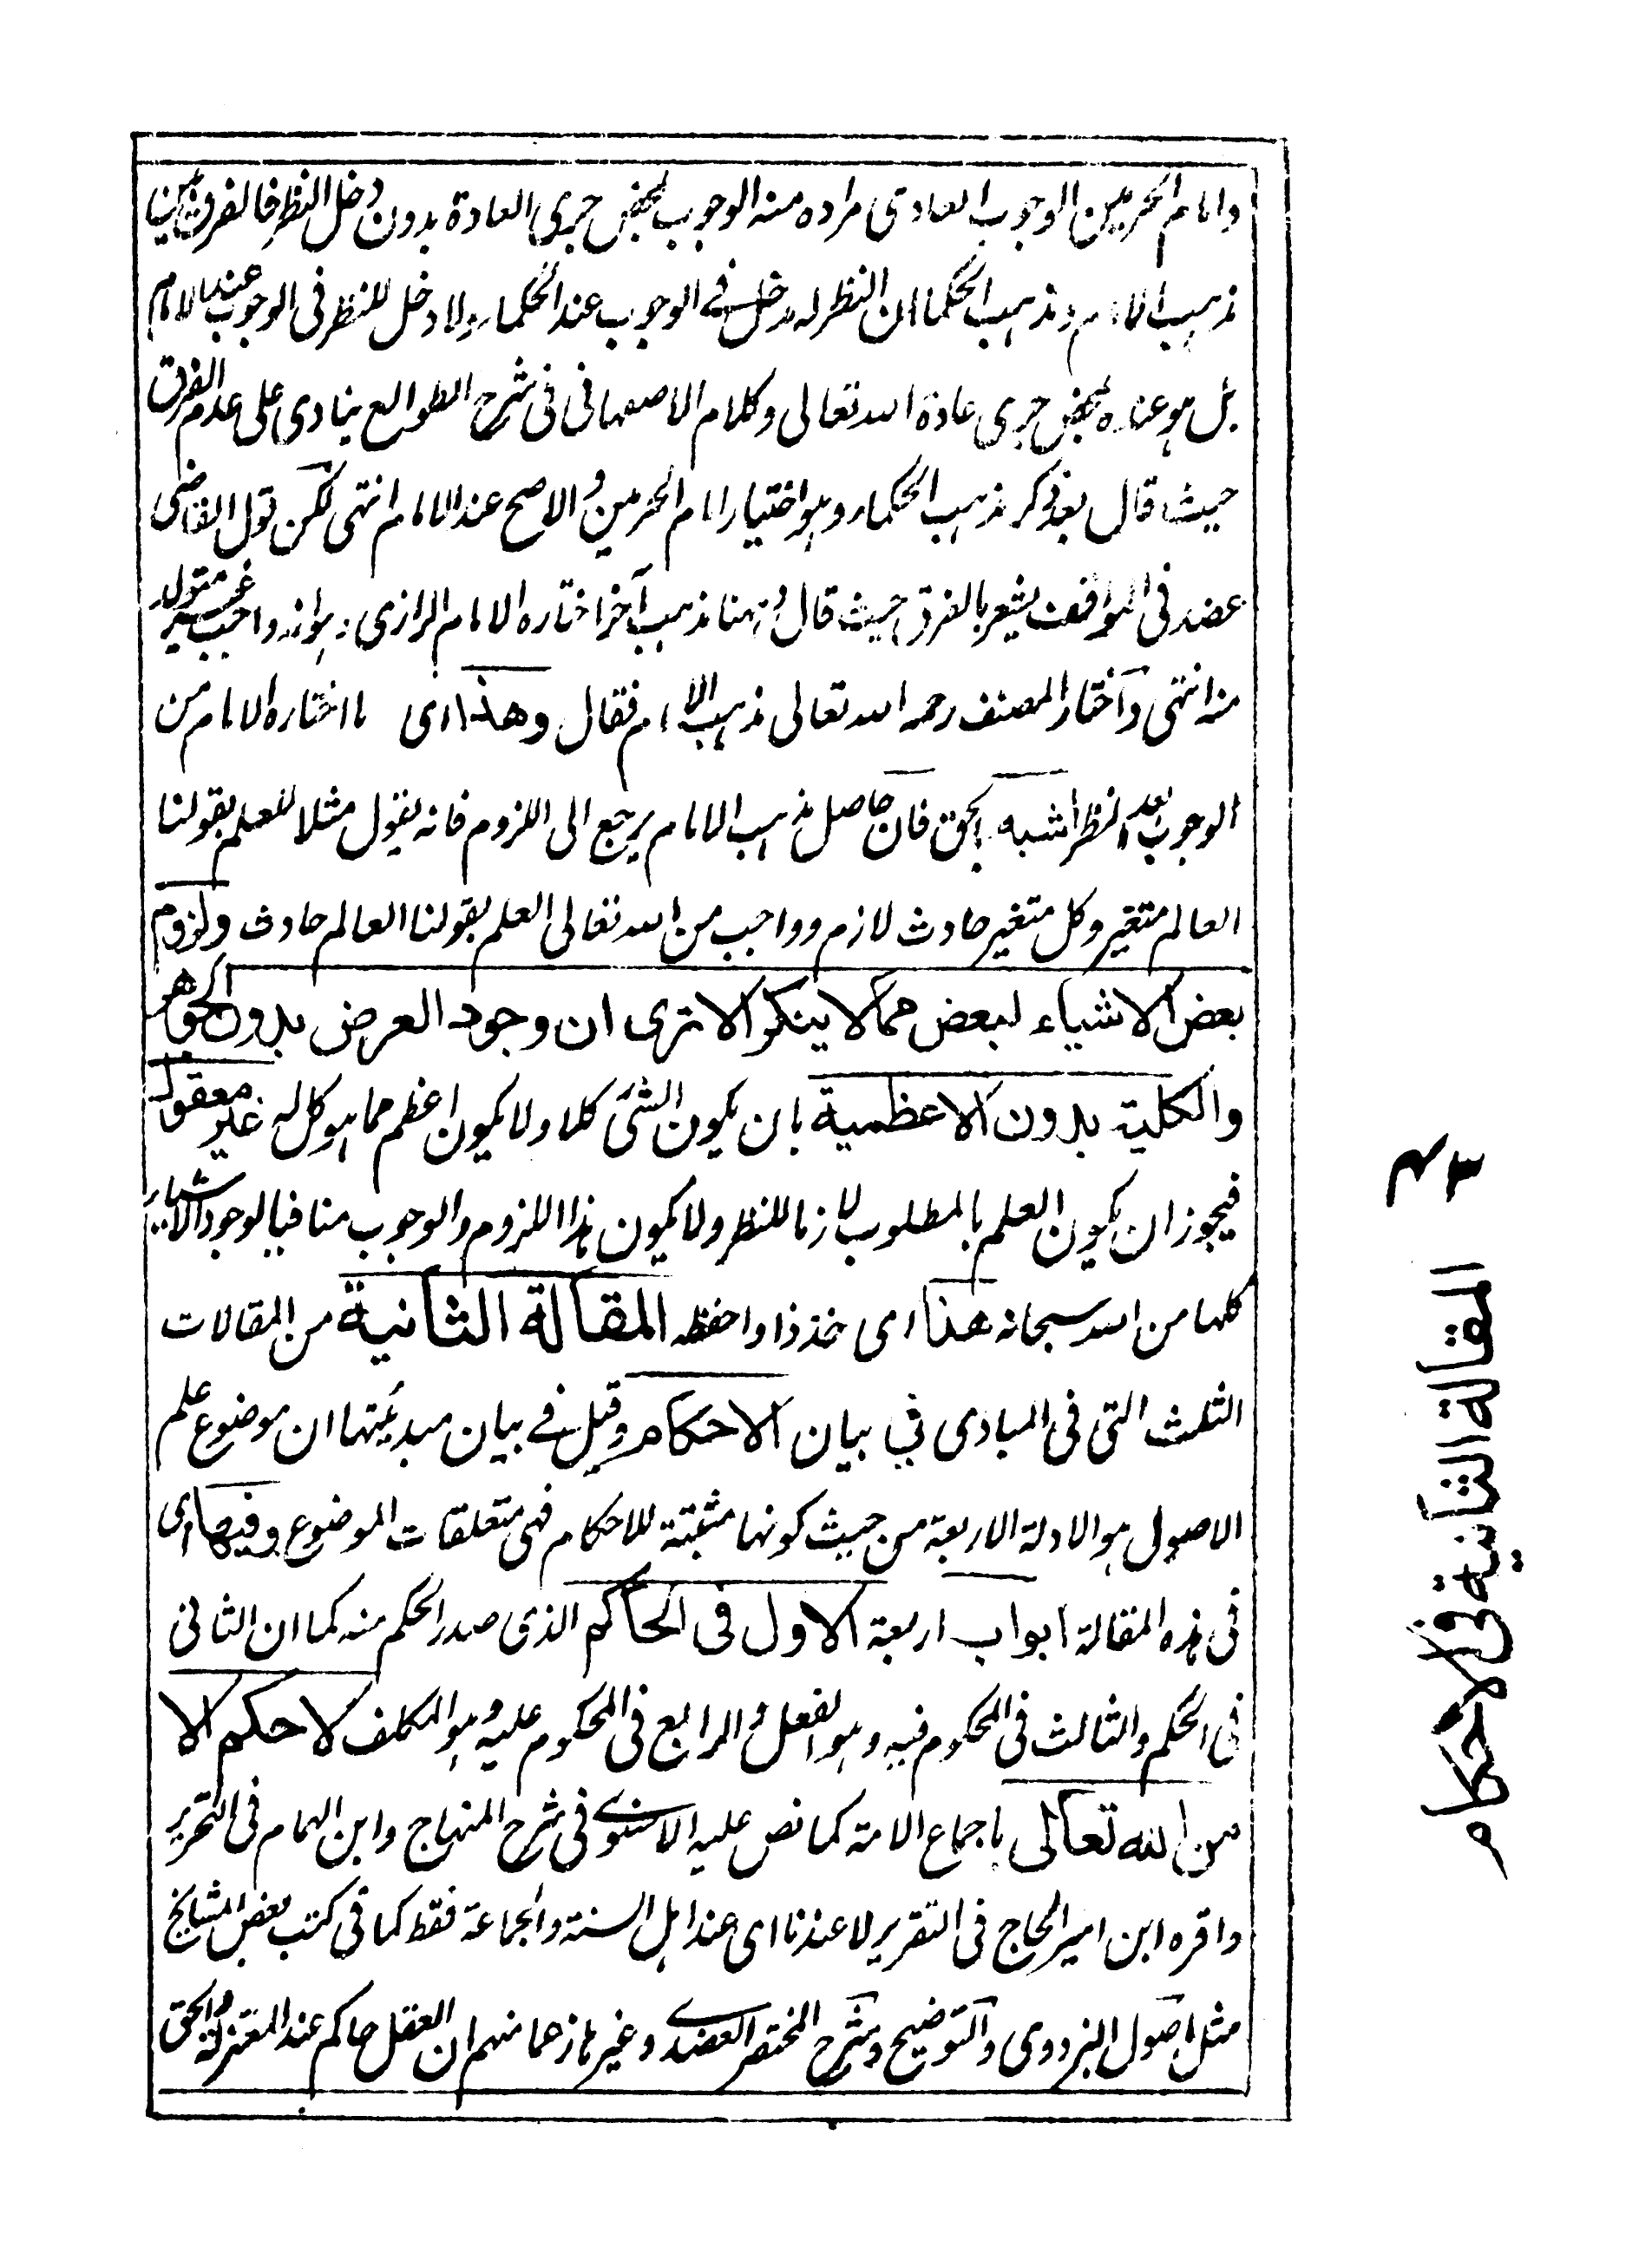 وامام الحرمين الوجوب العادى مراده منه الوجوب بمحض جرى العادة بدون دخل النظر فالفرق بين
مذهب الامام ومذهب الحكماء ان النظر له دخل فى الوجوب عند الحكماء ولا دخل للنظر فى الوجوب عند الامام
بل هو عنده بمحض جرى عادة الله تعالى وكلام الاصفهانى فى شرح الطوالع ينادى على عدم الفرق
حيث قال بعد ذكر مذهب الحكماء وهو اختيار امام الحرمين والاصح عند الامام انتهى لكن قول القاضى
عضد فى المواقف يشعر بالفرق حيث قال وههنا مذهب آخر اختاره الامام الرازى وهو انه واجب غير متولد
منه انتهى واختار المصنف رحمه الله تعالى مذهب الامام فقال وهذا اى ما اختاره الامام من
الوجوب بعد النظر اشبه بالحق فان حاصل مذهب الامام يرجع الى اللزوم فانه يقول مثلا للعلم بقولنا
العالم متغير وكل متغير حادث لازم وواجب من الله تعالى العلم بقولنا العالم حادث ولزوم
بعض الاشياء لبعض مما لا ينكر الا ترى ان وجود العرض بدون الجوهر
والكلية بدون الاعظمية بان يكون الشئ كلا ولا يكون اعظم مما هو كل له غير معقول
فيجوز ان يكون العلم بالمطلوب لازما للنظر ولا يكون هذا اللزوم والوجوب منافيا لوجود الاشياء
كلها من الله سبحانه هذا اى خذ ذا واحفظه المقالة الثانية من المقالات
الثلث التى فى المبادى فى بيان الاحكام وقيل فى بيان مبدئيتها ان موضوع علم
الاصول هو الادلة الاربعة من حيث كونها مثبتة للاحكام فهى متعلقات الموضوع وفيها اى
فى هذه المقالة ابواب اربعة الاول فى الحاكم الذى صدر الحكم منه كما ان الثانى
فى الحكم والثالث فى المحكوم فيه وهو الفعل والرابع فى المحكوم عليه وهو المكلف لا حكم الا
من الله تعالى باجماع الامة كما نص عليه الاسنوى فى شرح المنهاج وابن الهمام فى التحرير
واقره ابن امير الحاج فى التقرير لا عندنا اى عند اهل السنة والجماعة فقط كما فى كتب بعض المشايخ
مثل اصول البزدوى والتوضيح وشرح المختصر العضدى وغيرها زعما منهم ان العقل حاكم عند المعتزلة والحق
المقالة الثانية فى الاحكام